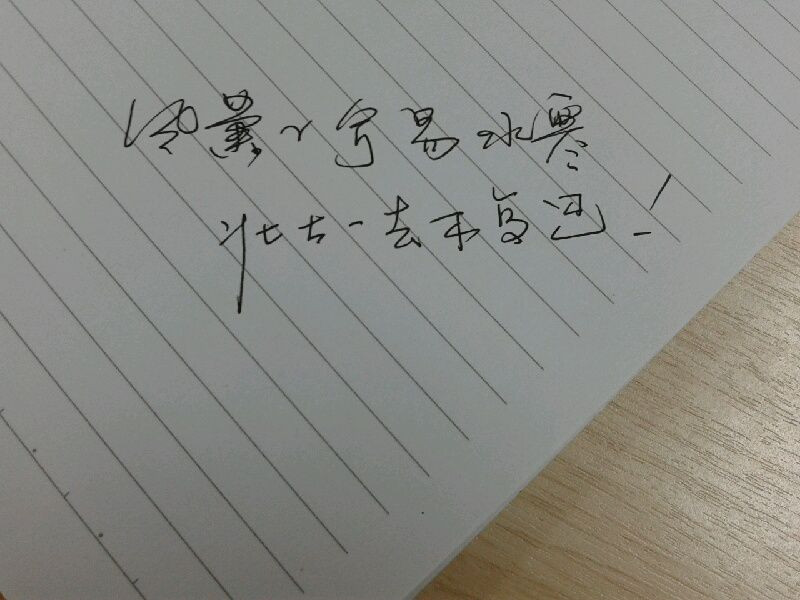 风萧萧兮易水寒
壮士一去不复还！